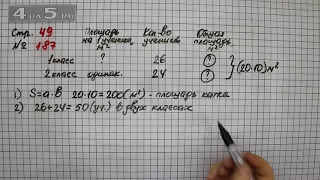 4 на 5.
Стр. 49
№ 187
Площадь на 1 ученика, м²
Кол-во учеников
Общая площадь м²
1 класс ? 26 ?
2 класс одинак. 24 ?
} (20·10) м²
1) S=a·B 20·10=200(м²) - площадь катка
2) 26+24=50(уч.) в двух классах